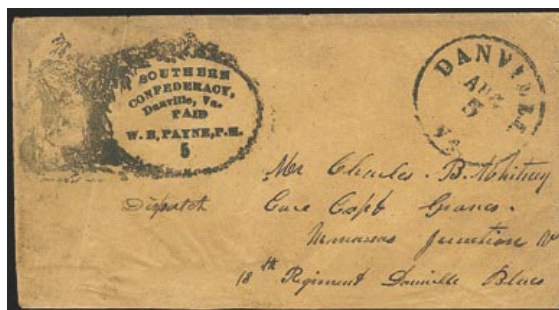 SOUTHERN
CONFEDERACY,
Danville, Va.
PAID
W. B. PAYNE, P.M.
5
DANVILLE
AUG
5
VA
Mr Charles. B. Whitney
Dispatch
Care Capt Graves.
Manassas Junction
18th Regiment Danville Blues